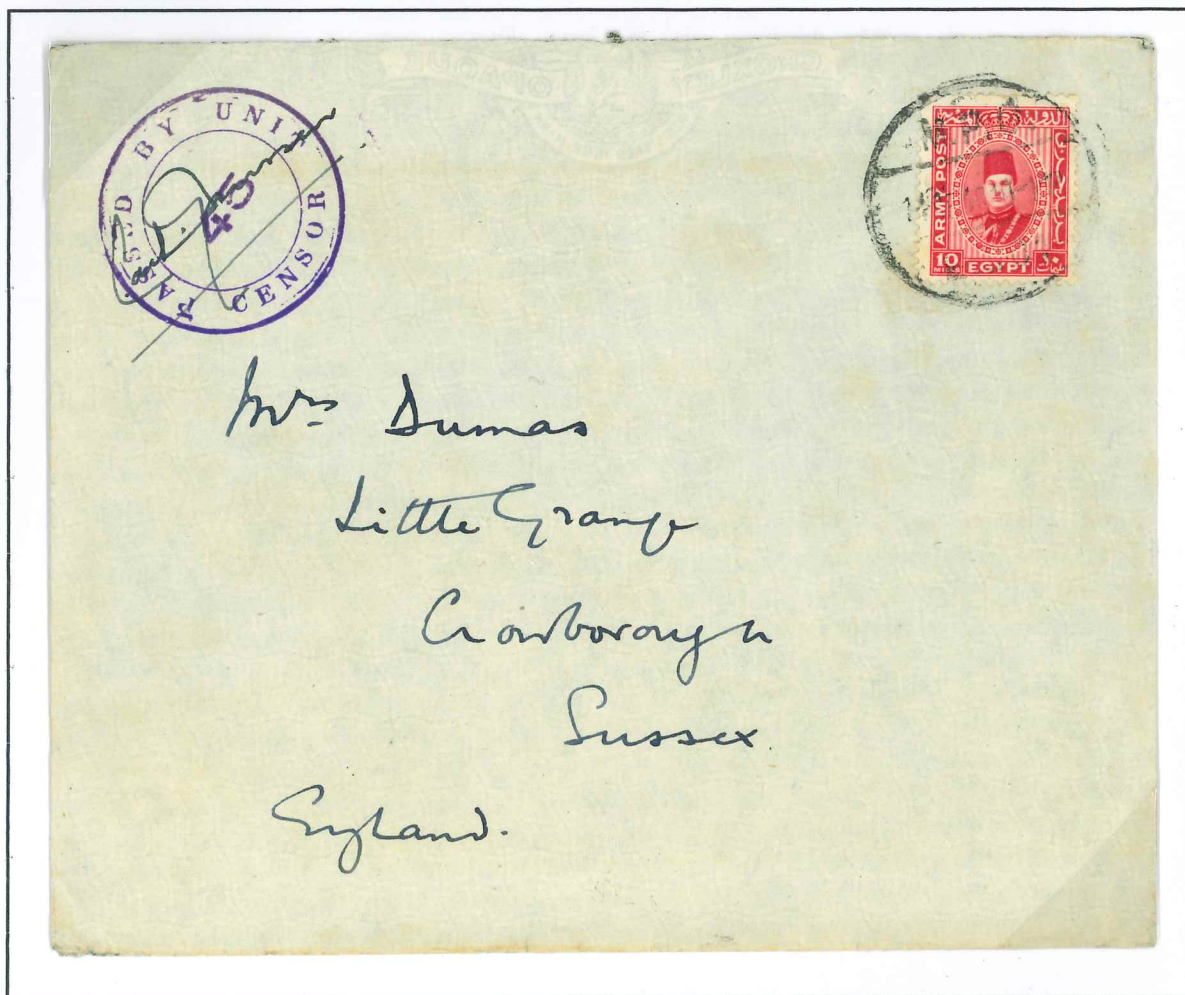 PASSED BY UNIT CENSOR
45
ARMY POST
10
MILLS
EGYPT
Mrs Dumas
Little Grange
Crowborough
Sussex
England.